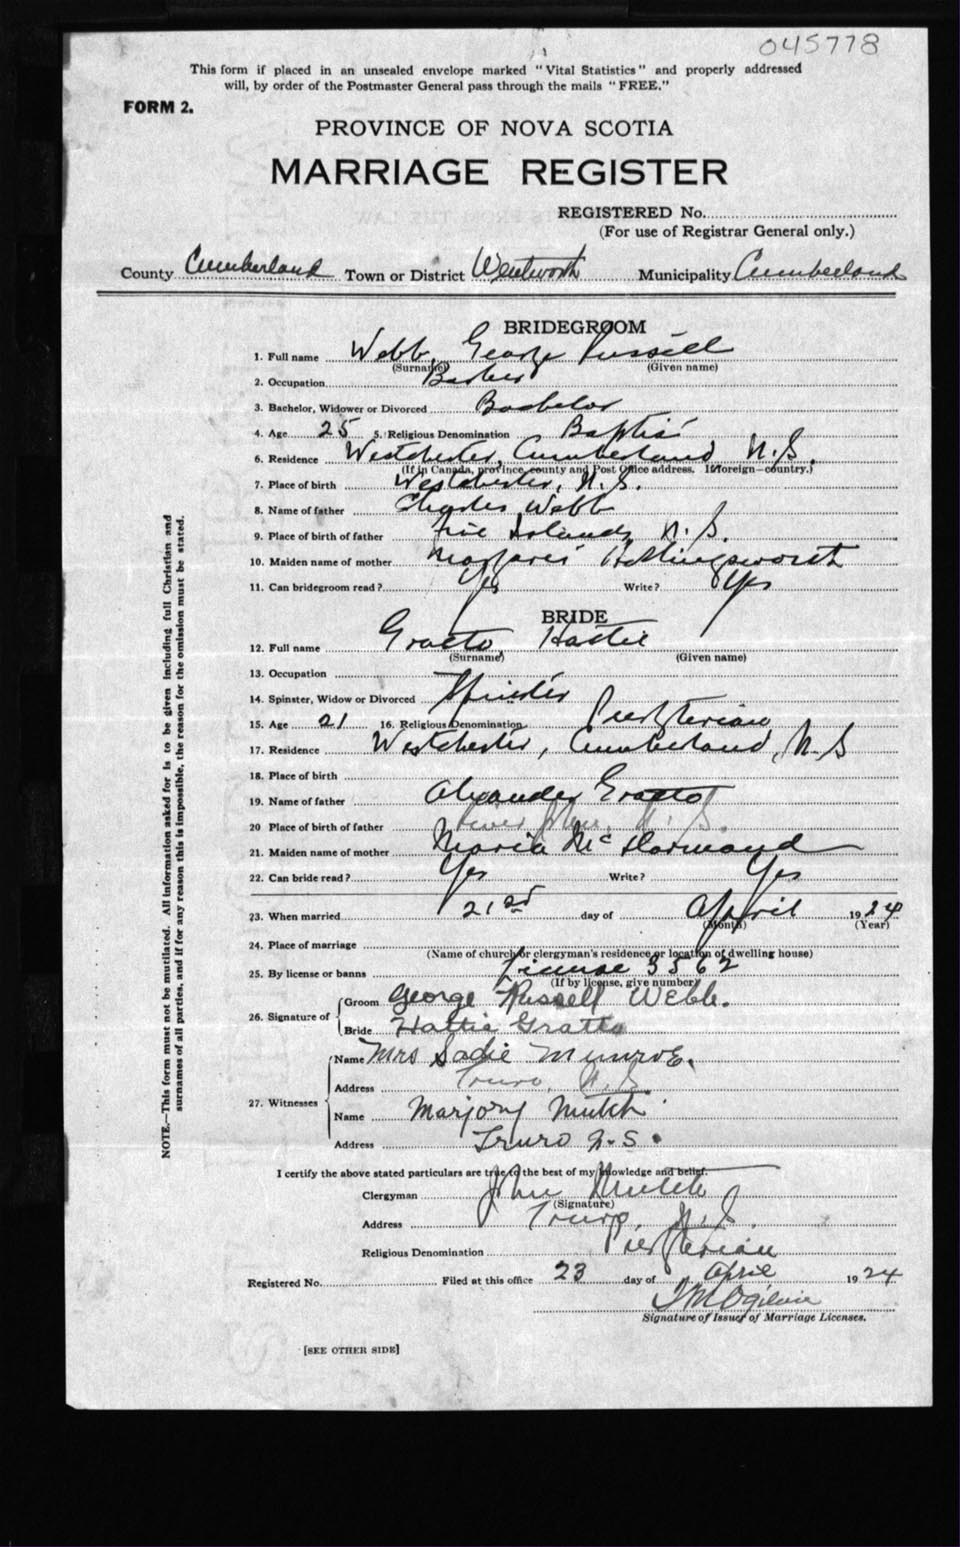 045778
This form if placed in an unsealed envelope marked "Vital Statistics" and properly addressed
will, by order of the Postmaster General pass through the mails "FREE."
FORM 2.
PROVINCE OF NOVA SCOTIA
MARRIAGE REGISTER
REGISTERED No.
(For use of Registrar General only.)
County Cumberland Town or District Wentworth Municipality Cumberland
BRIDEGROOM
1. Full name Webb, George Russell
(Surname) (Given name)
2. Occupation Barber
3. Bachelor, Widower or Divorced Bachelor
4. Age 25 5. Religious Denomination Baptist
6. Residence Westchester, Cumberland N.S.
(If in Canada, province, county and Post Office address. If foreign—country.)
7. Place of birth Westchester, N.S.
8. Name of father Charles Webb
9. Place of birth of father Five Islands N.S.
10. Maiden name of mother Margaret Hollingsworth
11. Can bridegroom read? Yes Write? Yes
BRIDE
12. Full name Gratto, Hattie
(Surname) (Given name)
13. Occupation
14. Spinster, Widow or Divorced Spinster
15. Age 21 16. Religious Denomination Presbyterian
17. Residence Westchester, Cumberland, N.S
18. Place of birth
19. Name of father Alexander Gratto
20 Place of birth of father River John, N.S.
21. Maiden name of mother Maria
22. Can bride read? Yes Write? Yes
23. When married 21st day of April 1924
(Month) (Year)
24. Place of marriage
(Name of church or clergyman's residence or location of dwelling house)
25. By license or banns License 3562
(If by license, give number)
26. Signature of Groom George Russell Webb.
Bride Hattie Gratto
27. Witnesses Name Mrs Sadie Munroe.
Address Truro, N.S.
Name Marjory Mutch
Address Truro N.S.
I certify the above stated particulars are true to the best of my knowledge and belief.
Clergyman John Mutch
(Signature)
Address Truro, N.S.
Religious Denomination Presbyterian
Registered No. Filed at this office 23 day of April 1924
Ogilvie
Signature of Issuer of Marriage Licenses.
[SEE OTHER SIDE]
NOTE.—This form must not be mutilated. All information asked for is to be given including full Christian and
surnames of all parties, and if for any reason this is impossible, the reason for the omission must be stated.